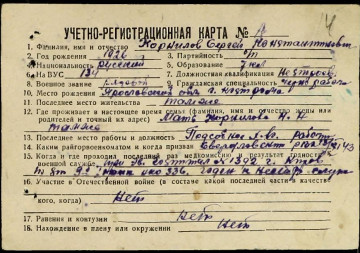 14
УЧЕТНО-РЕГИСТРАЦИОННАЯ КАРТА № А
1. Фамилия, имя и отчество Корнилов Сергей Константинович
2. Год рождения 1926 3. Партийность б/п
4. Национальность русский 5. Образование 7 кл
6. На ВУС 134 7. Должностная квалификация
8. Военное звание рядовой 9. Гражданская специальность чернораб.
10. Место рождения Ярославская обл г. Кострома
11. Последнее место жительства также
12. Где проживает в настоящее время семья (фамилия, имя и отчество жены или
родителя и точный их адрес) Мать Корнилова Н. Н
также
13. Последнее место работы и должность рабоч
14. Каким райгорвоенкоматом и когда призван Свердловским РВК 43
15. Когда и где проходил последний раз медкомиссию и результат (годность к
военной службе) при 1342 г.
ст 93 нко 336. годен к нестр. службе
16. Участие в Отечественной войне (в составе какой последней части в качестве
кого, когда) Нет
17. Ранения и контузии Нет
18. Нахождение в плену или окружении Нет